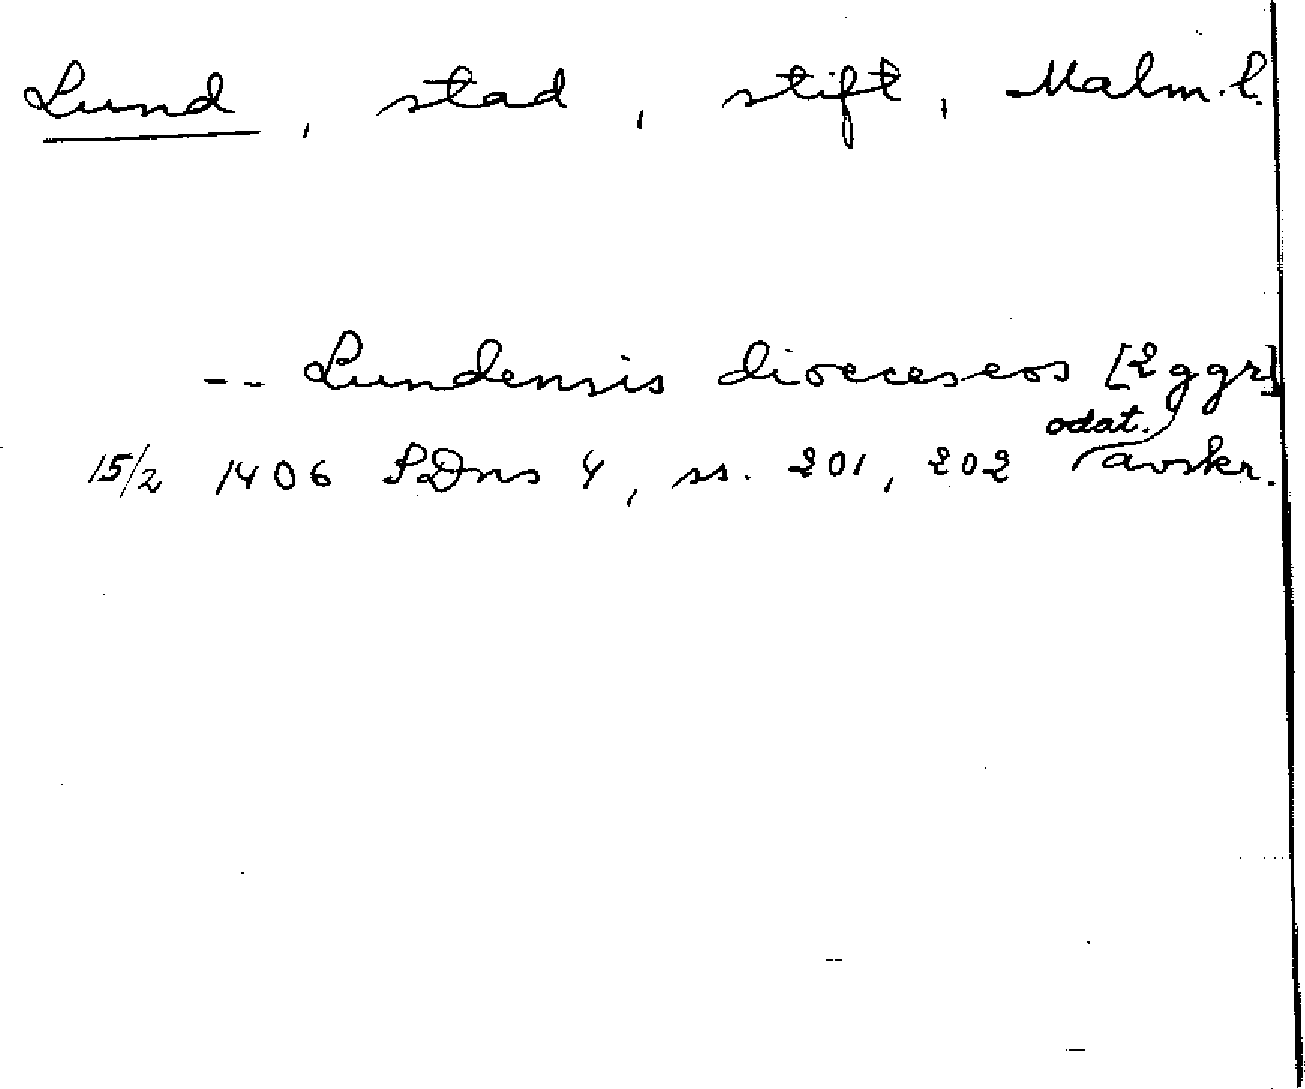 Lund, stad, stift, Malm.l.
-- Lundensis dioeceseos [2 ggr]
15/2 1406 SDns 4, ss. 201, 202 odat. avskr.